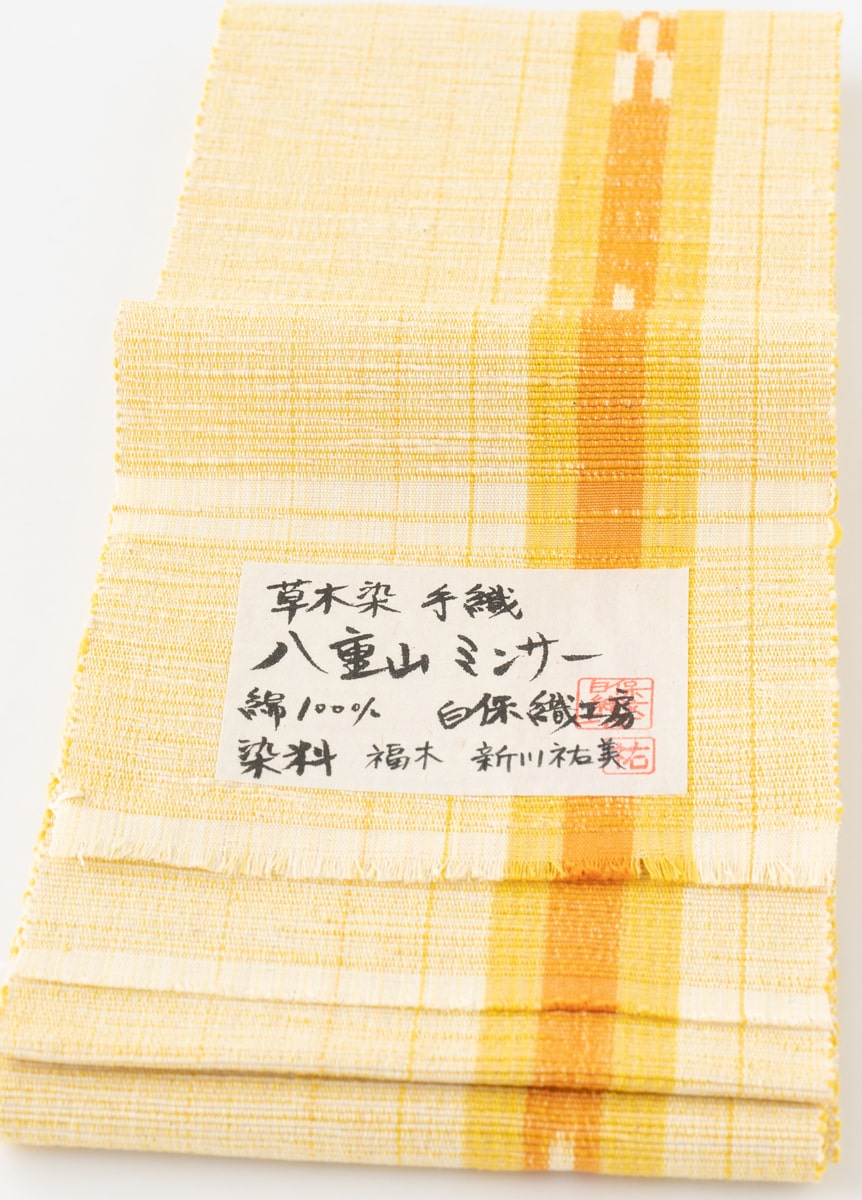 草木染 手織
八重山 ミンサー
綿100% 白保織工房
染料 福木 新川祐美